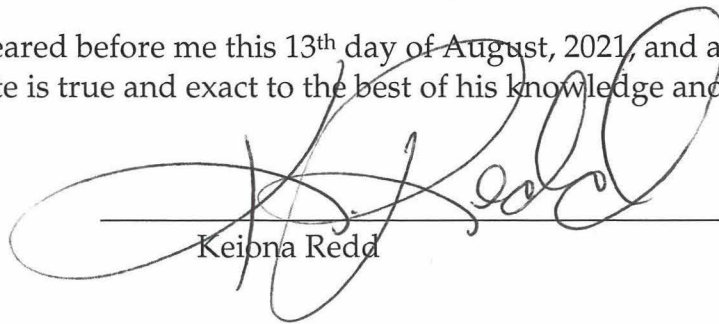 eared before me this 13th day of August, 2021, and a
te is true and exact to the best of his knowledge and
K. Redd
Keiona Redd